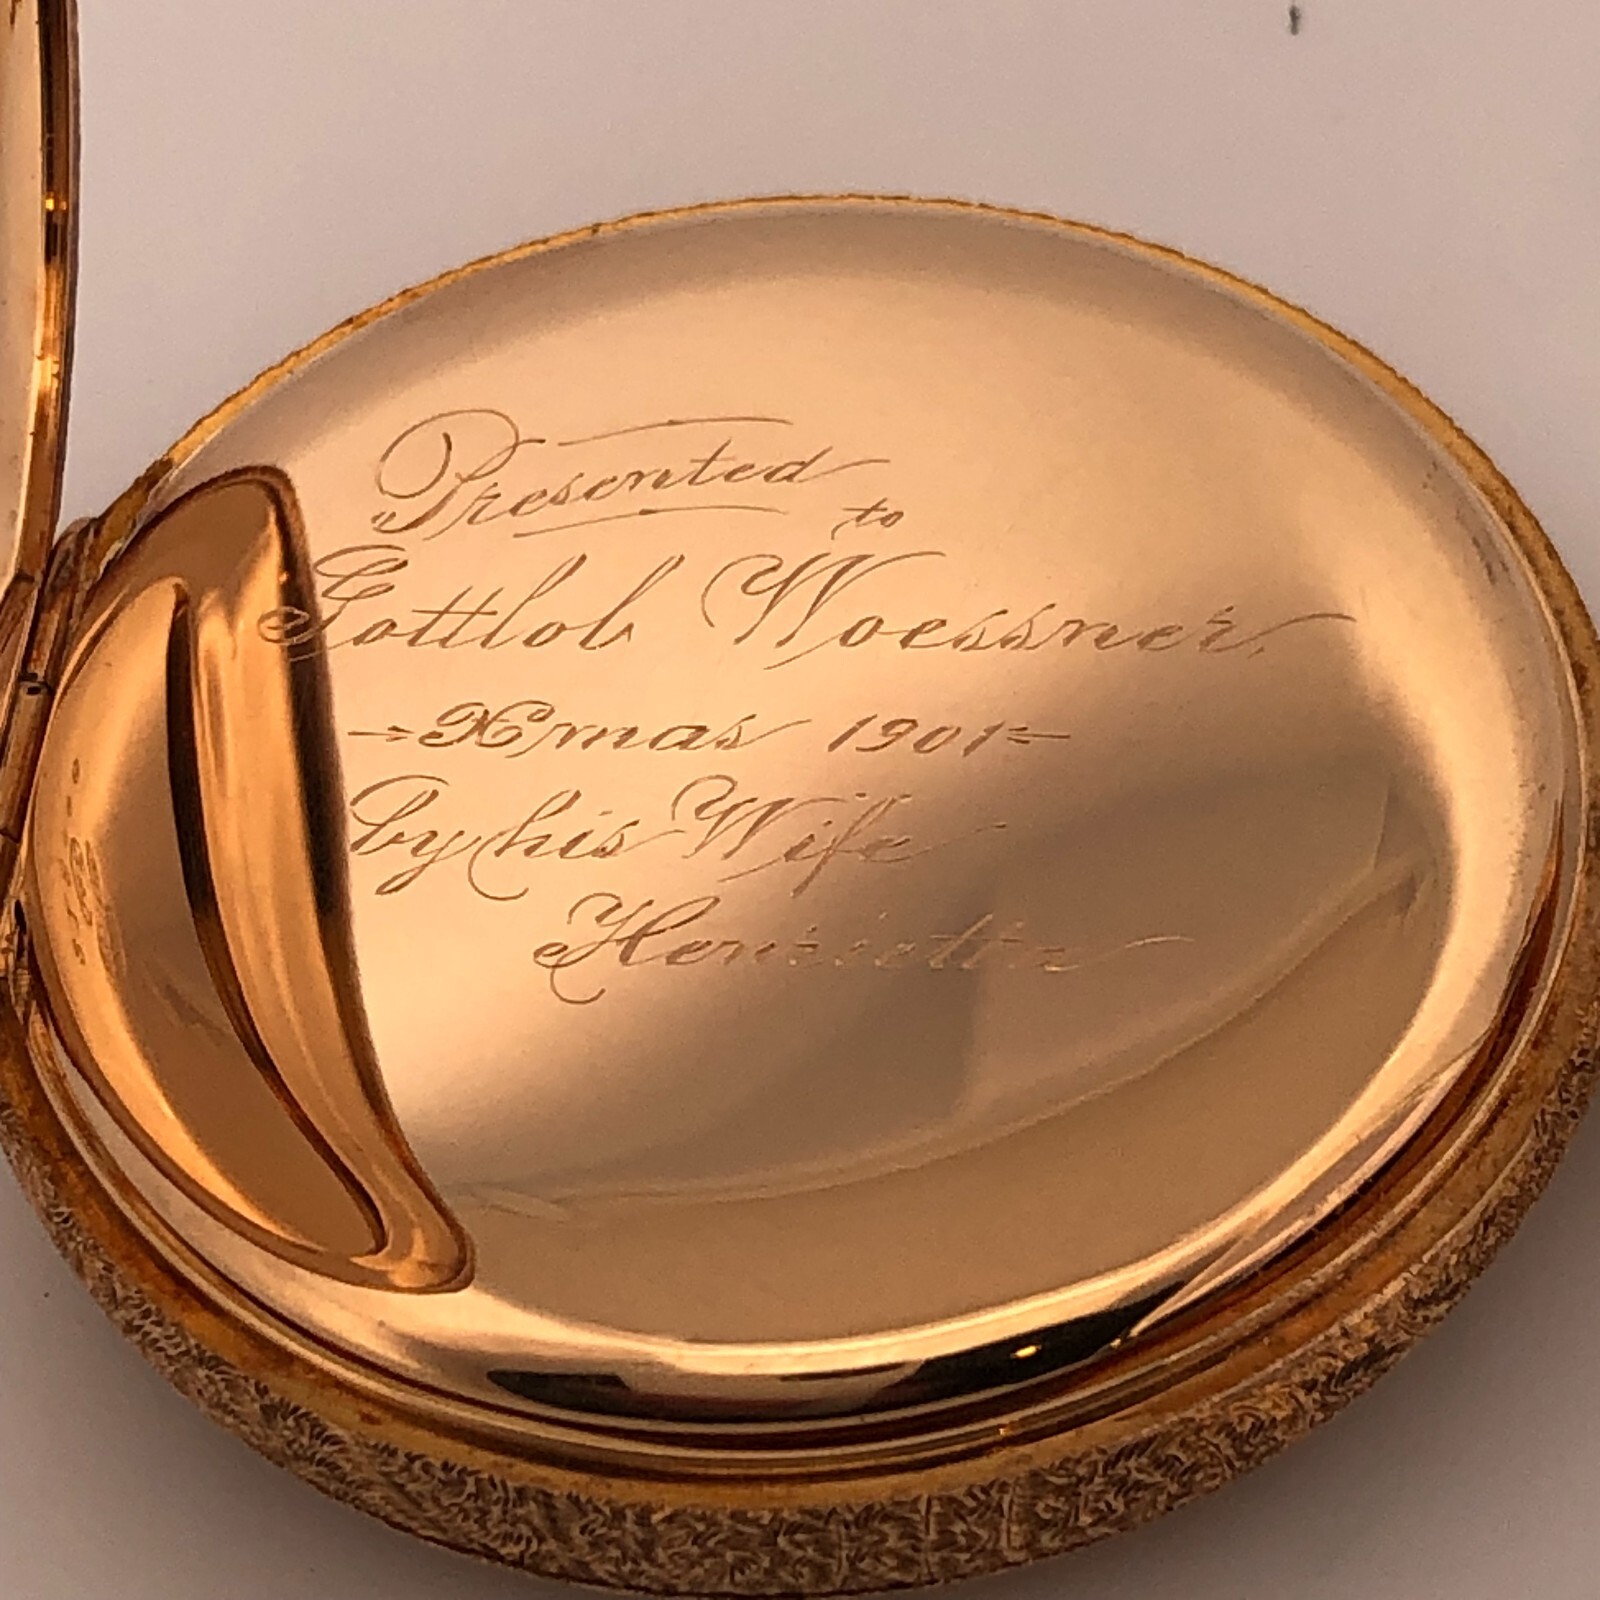 Presented
to
Gottlob Woessner.
Xmas 1901
by his Wife
Henrietta